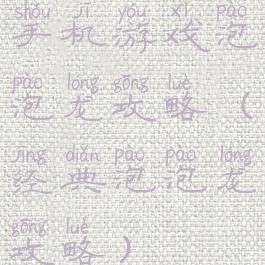 shǒu jī yóu xì pào
手机游戏泡
pào lóng gōng lüè
泡龙攻略（
jīng diǎn pào pào lóng
经典泡泡龙
gōng lüè
攻略）